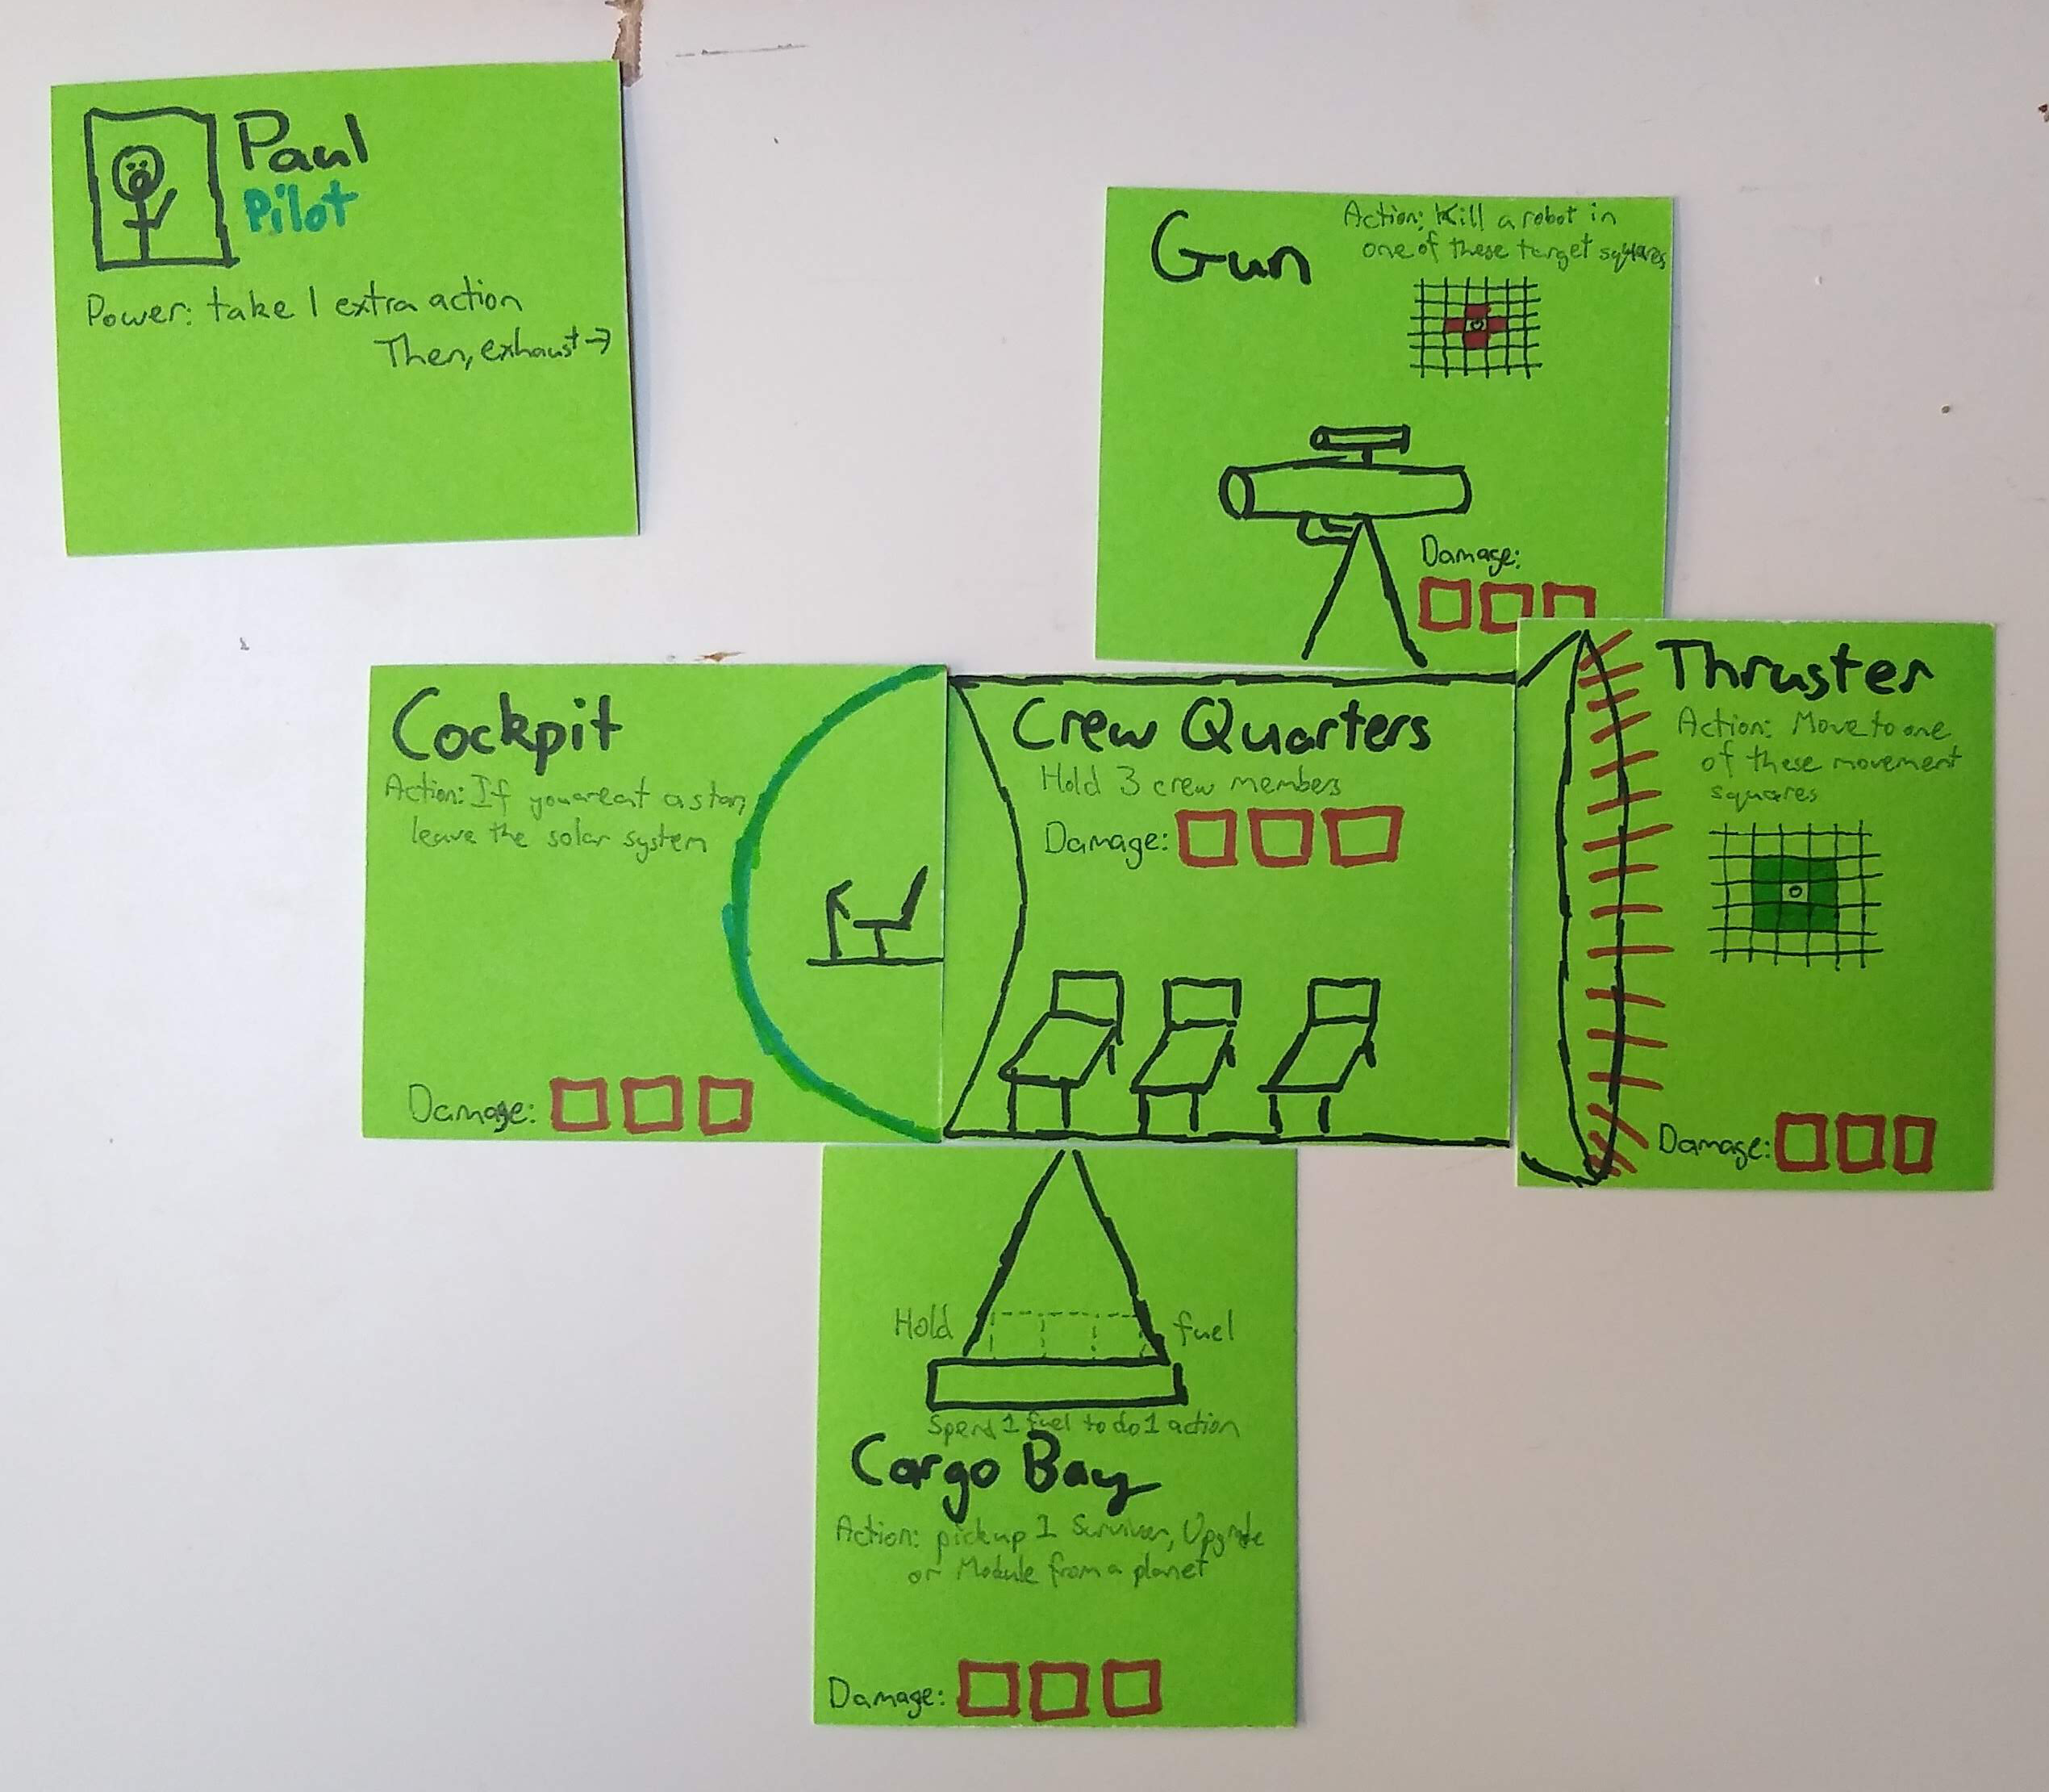 Paul
Pilot
Power: take 1 extra action
Then, exhaust →
Gun
Action: Kill a robot in
one of these target squares
Damage:
Cockpit
Action: If you are at a star,
leave the solar system
Damage:
Crew Quarters
Hold 3 crew members
Damage:
Thruster
Action: Move to one
of these movement
squares
Damage:
Hold fuel
Spend 1 fuel to do 1 action
Cargo Bay
Action: pickup 1 Survivor, Upgrade
or Module from a planet
Damage: